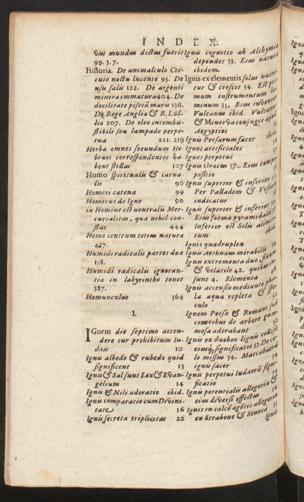 INDEX.
Qui mundus dictus fuerit
99. 3. 7.
Historia. De animalculo Coc-
cuio noctu lucente 95. De
usu salis 122. De argenti
minera immatura 404. De
docilitate pisciũ maris 136.
De Rege Angliæ & R. Lul-
lio 207. De oleo incombu-
stibili seu lampade perpe-
tua 211. 219
Herba omnes secundum He-
bræos correspondentes ha-
bent stellas 107
Homo spiritualis & carna-
lis 90
Homeri catena 99
Homerus de Igne 90
in Homine est mentralis Mer-
curialitas, qua nihil con-
stat 444
Homo centrum totius naturæ
427.
Humidi radicalis partes duæ
138.
Humidi radicalis ignoran-
tia in labyrintho tenet
387.
Homunculus 364
I.
IGnem die septimo accen-
dere cur prohibitum Iu-
dæis 10
Ignis albedo & rubedo quid
significent 13
Ignis & Sal sunt Lex & Evan-
gelium 14
Ignis & Nili adoratio ibid.
Ignis comparatio cum Divini-
tate 16
Ignis secreta triplicitas 22
Ignis cognitio ab Alchymia
dependet 33. Eius natura
ibidem.
Ignis ex elementis solus
cur & crescit 34. Est pri-
mum instrumentum
minum 35. Eius inventor
Vulcanus ibid. Vulcani
& Minervæ conjuges apud
Ægyptios
Ignis Persarum sacer
Ignes artificiales
Ignes perpetui
Ignis Græcus 37. Eius com-
positio
Ignis superior & inferior
Per Palladem & Vestam
indicatur
Ignis superior & inferior
Eius forma pyramidalis
Inferior est Solis
ibid.
Ignis quadruplex
Ignis Aethnæus mirabilis
Ignis excrementa duo
& volatile 42. quibus
sunt 4. Elementa
Ignis accensio mediante phia-
la aqua repleta
culo
Ignem Persæ & Romani
comeribus de arbore
mosa adorabant
Ignis ex duobus lignis
eiusq; significatio 52. De cæ-
lo missus 54. Maccabæorum
ignis sacer
Ignis perpetuus Iudæorũ signi-
ficatio
Ignis potentialis allegoria &
eius diversi effectus
Ignis in calcē agētis allegoria
ex Strabone & Seneca